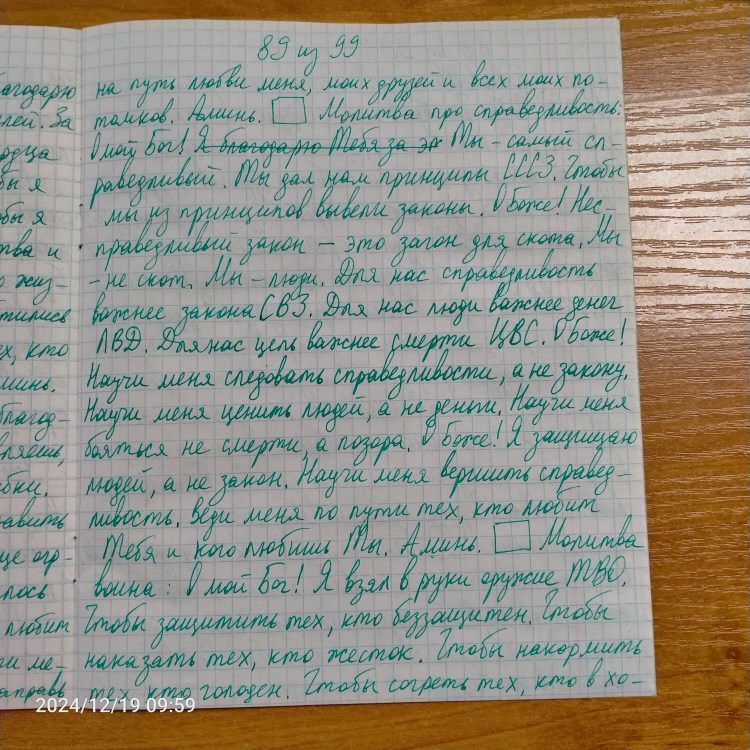 89 из 99
на путь любви меня, моих друзей и всех моих по-
томков. Аминь. Молитва про справедливость:
О мой Бог! Я благодарю Тебя за эт Ты - самый сп-
раведливый. Ты дал нам принципы СССЗ. Чтобы
мы из принципов вывели законы. О Боже! Нес-
праведливый закон - это загон для скота. Мы
- не скот. Мы - люди. Для нас справедливость
важнее закона СВЗ. Для нас люди важнее денег
ЛВД. Для нас цель важнее смерти ЦВС. О Боже!
Научи меня следовать справедливости, а не закону.
Научи меня ценить людей, а не деньги. Научи меня
бояться не смерти, а позора. О Боже! Я защищаю
людей, а не закон. Научи меня вершить справед-
ливость. Веди меня по пути тех, кто любит
Тебя и кого любишь Ты. Аминь. Молитва
воина: О мой Бог! Я взял в руки оружие ТВО.
Чтобы защитить тех, кто беззащитен. Чтобы
наказать тех, кто жесток. Чтобы накормить
тех, кто голоден. Чтобы согреть тех, кто в хо-
агодарю
лей. За
рдца
бы я
бы я
тва и
о жиз-
тились
ех, кто
минь.
благод-
вляешь,
бки.
авить
ще огр-
лось
любит
ти ме-
аправь
2024/12/19 09:59